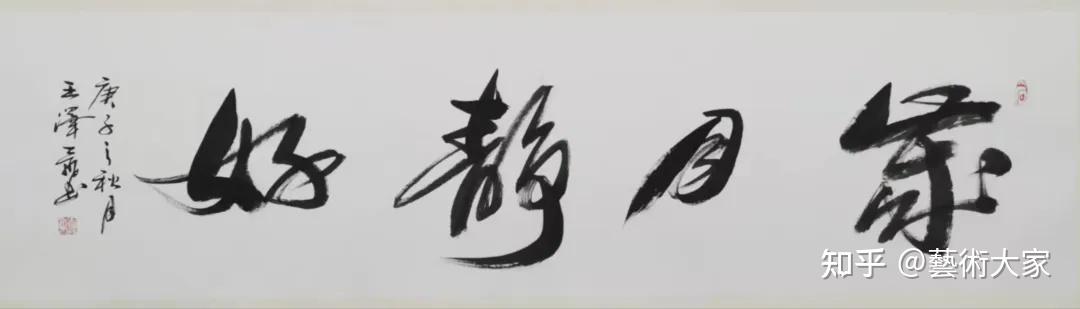 歲月静好
庚子之秋月
王澤書
知乎 @藝術大家